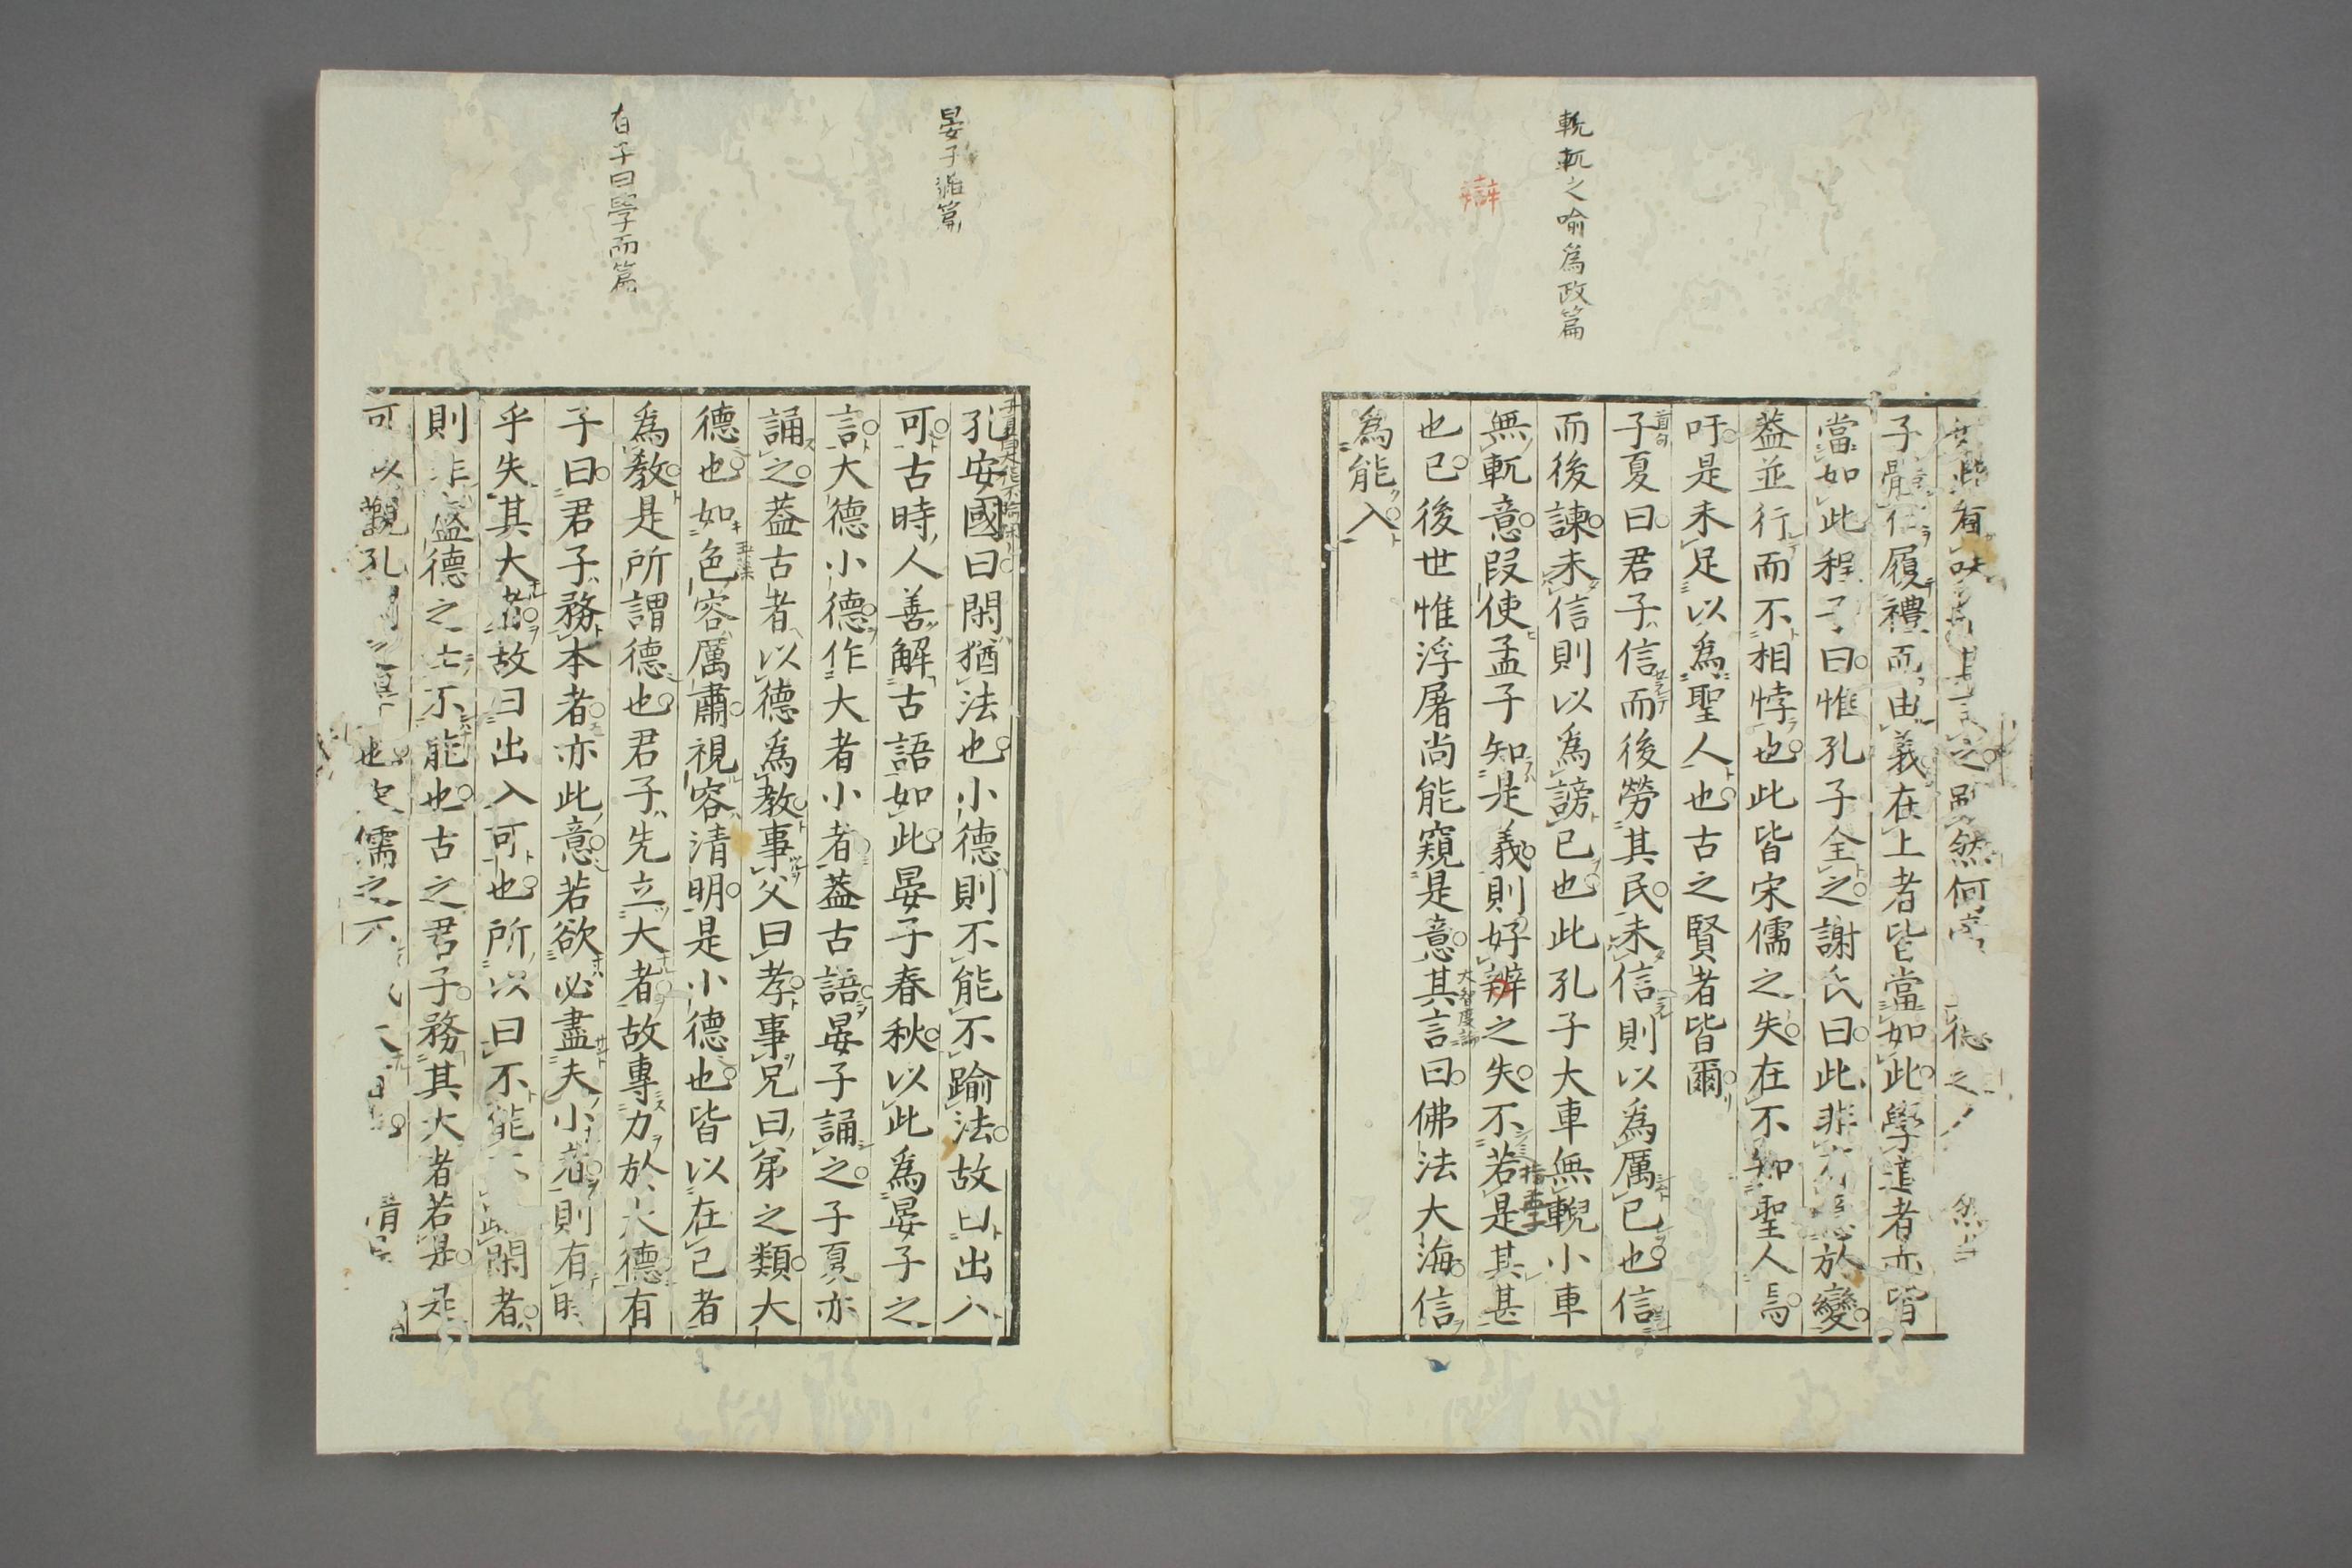 輗軏之喩爲政篇
辯
有味
之
然何
德之
然
子履禮而由義在上者皆當如此學道者亦皆
當如此程子曰惟孔子全之謝氏曰此非於變
蓋並行而不相悖也此皆宋儒之失在不知聖人焉
吁是未足以爲聖人也古之賢者皆爾
首句
子夏曰君子信而後勞其民未信則以爲厲已也信
而後諫未信則以爲謗已也此孔子大車無輗小車
指車
無軏意叚使孟子知是義則好辨之失不若是其甚
大智度論
也已後世惟浮屠尚能窺是意其言曰佛法大海信
爲能入
晏子雜篇
有子曰學而篇
孔安國曰閑猶法也小德則不能不踰法故曰出入
可古時人善解古語如此晏子春秋以此爲晏子之
言大德小德作大者小者蓋古語晏子誦之子夏亦
誦之蓋古者以德爲教事父曰孝事兄曰弟之類大
玉藻
德也如色容厲肅視容清明是小德也皆以在己者
爲教是所謂德也君子先立大者故專力於大德有
子曰君子務本者亦此意若欲必盡夫小者則有時
乎失其大者故曰出入可也所以曰不能不踰閑者
則非盛德之士不能也古之君子務其大者若是是
可以觀孔
也
儒之